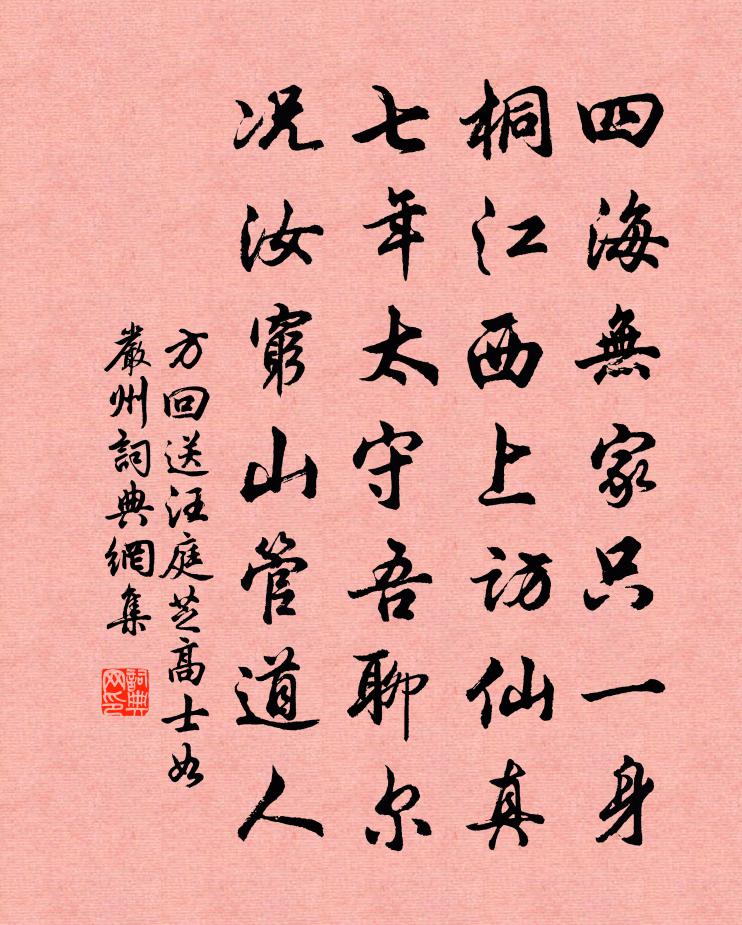 四海無家只一身
桐江西上訪仙真
七年太守吾聊尔
况汝窮山管道人
方回送汪庭芝高士如
嚴州詞典網集
詞典网印